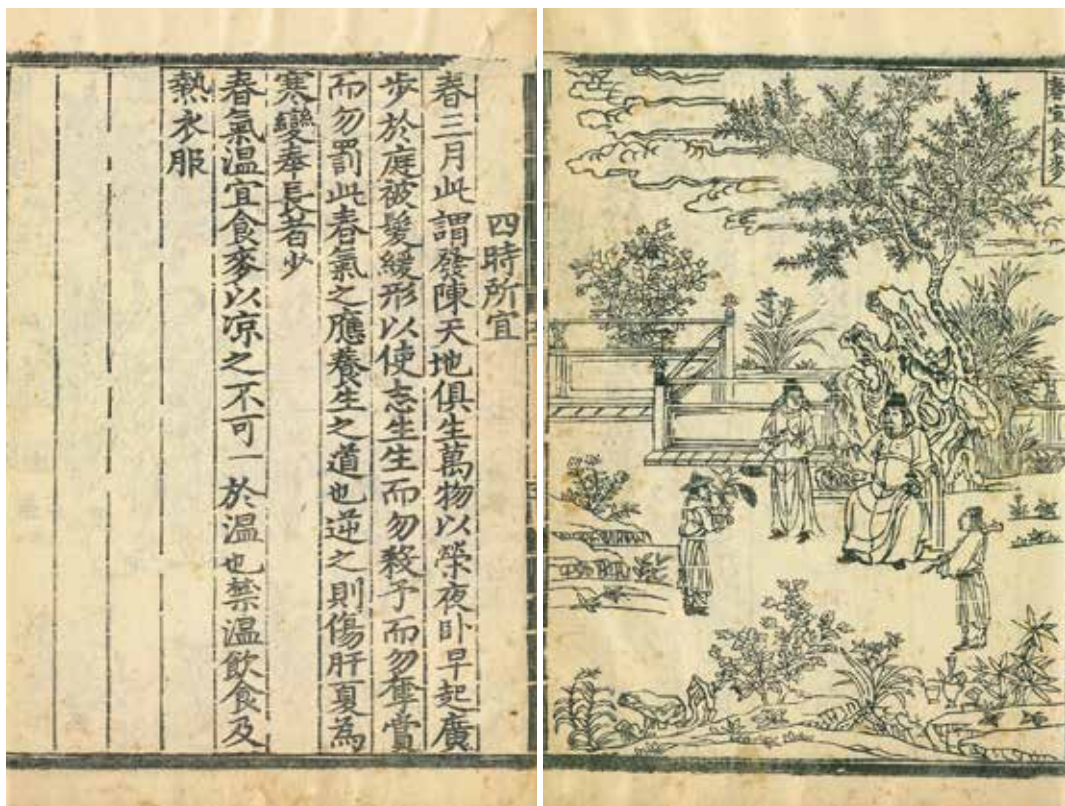 春宜食麥
四時所宜
春三月此謂發陳天地俱生萬物以榮夜卧早起廣
步於庭被髮緩形以使志生生而勿殺予而勿奪賞
而勿罰此春氣之應養生之道也逆之則傷肝夏為
寒變奉長者少
春氣溫宜食麥以凉之不可一於溫也禁溫飲食及
熱衣服